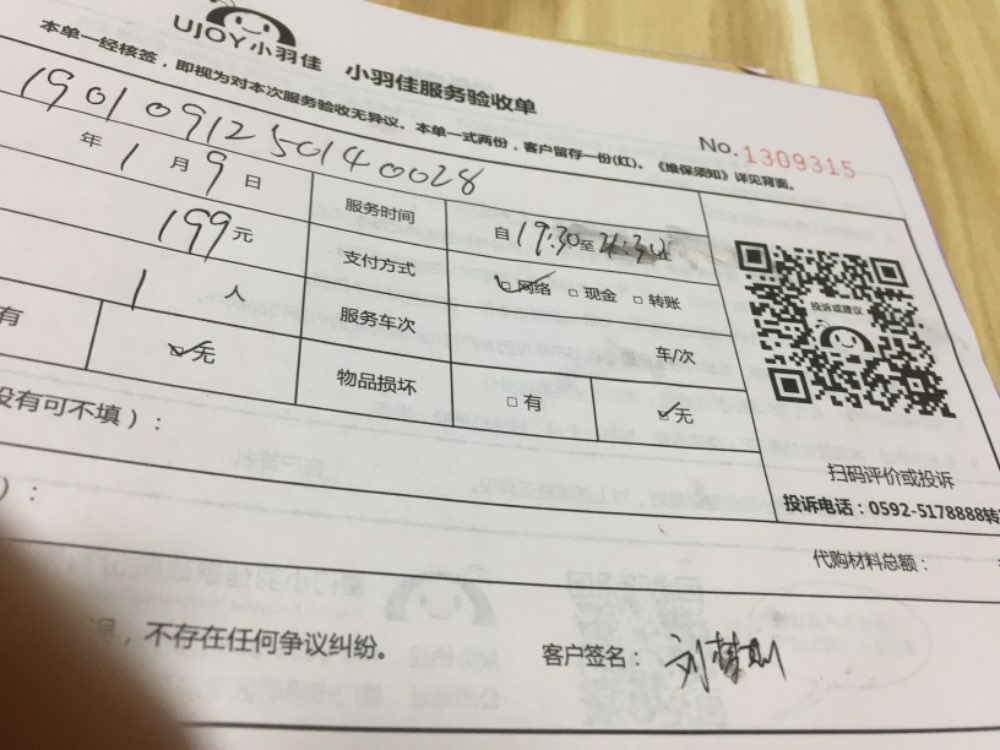 UJOY小羽佳 小羽佳服务验收单
本单一经核签，即视为对本次服务验收无异议。本单一式两份，客户留存一份(红)、《维保须知》详见背面。
No.1309315
190109125014 0028
年1月9日 服务时间 自19:30至21:30止
199元 支付方式 网络 现金 转账
1人 服务车次 车/次
有 无 物品损坏 有 无
投诉或建议
没有可不填）：
扫码评价或投诉
）：
投诉电话：0592-5178888转
代购材料总额：
不存在任何争议纠纷。 客户签名：刘